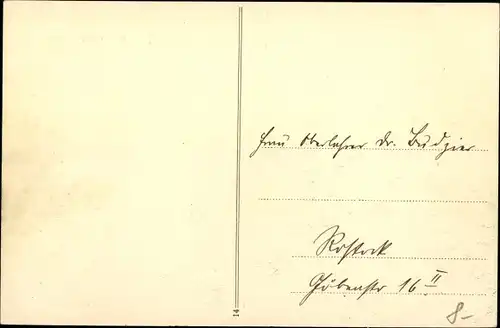 Frau Oberlehrer Dr. Budzier
Rostock
Göbenstr 16 II
8-
14